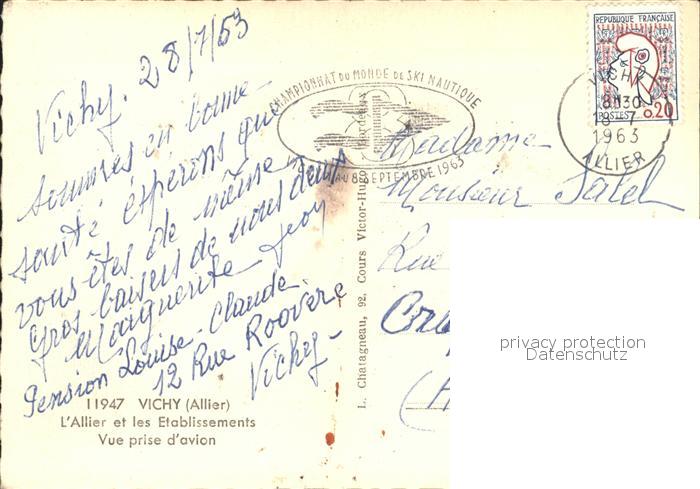 Vichy. 28/7/63
sommes en bonne
santé espérons que
vous êtes de même
Gros baisers de nous deux
Marguerite
Pension Louise-Claude
12 Rue Roovère
Vichy-
11947 VICHY (Allier)
L'Allier et les Etablissements
Vue prise d'avion
L. Chatagneau, 92, Cours Victor-Hugo
CHAMPIONNAT DU MONDE DE SKI NAUTIQUE
AU 8 SEPTEMBRE 1963
REPUBLIQUE FRANÇAISE
POSTES 0,20
VICHY
8H30
8-7
1963
ALLIER
Madame
Monsieur
Rue
privacy protection
Datenschutz